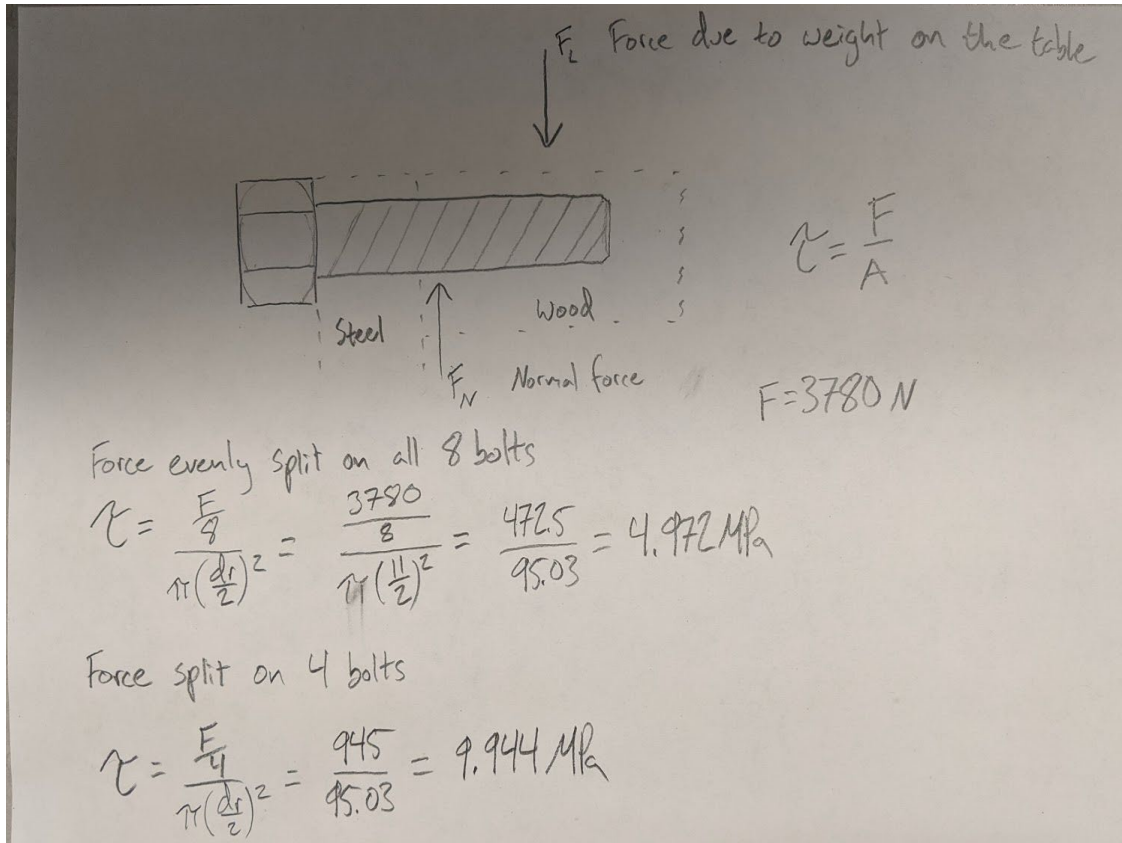 F_L Force due to weight on the table
τ = F/A
Steel
Wood
F_N Normal force
F = 3780 N
Force evenly split on all 8 bolts
τ = (F/8)/(π(dr/2)²) = (3780/8)/(π(11/2)²) = 472.5/95.03 = 4.972 MPa
Force split on 4 bolts
τ = (F/4)/(π(dr/2)²) = 945/95.03 = 9.944 MPa